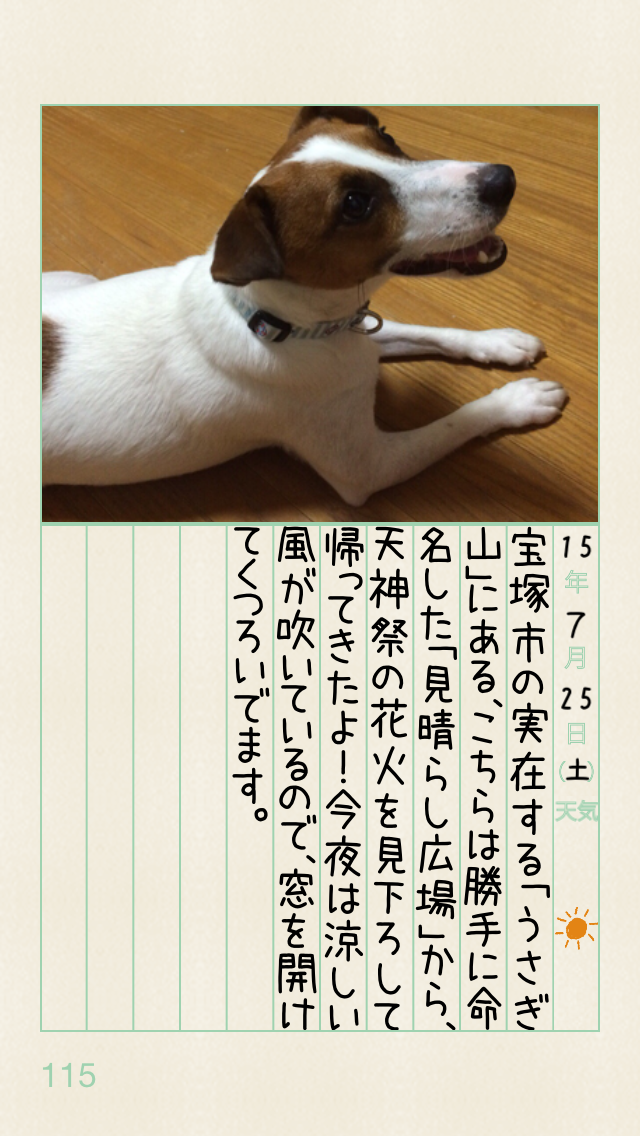 15年7月25日(土)天気
宝塚市の実在する「うさぎ
山」にある、こちらは勝手に命
名した「見晴らし広場」から、
天神祭の花火を見下ろして
帰ってきたよ！今夜は涼しい
風が吹いているので、窓を開け
てくつろいでます。
115